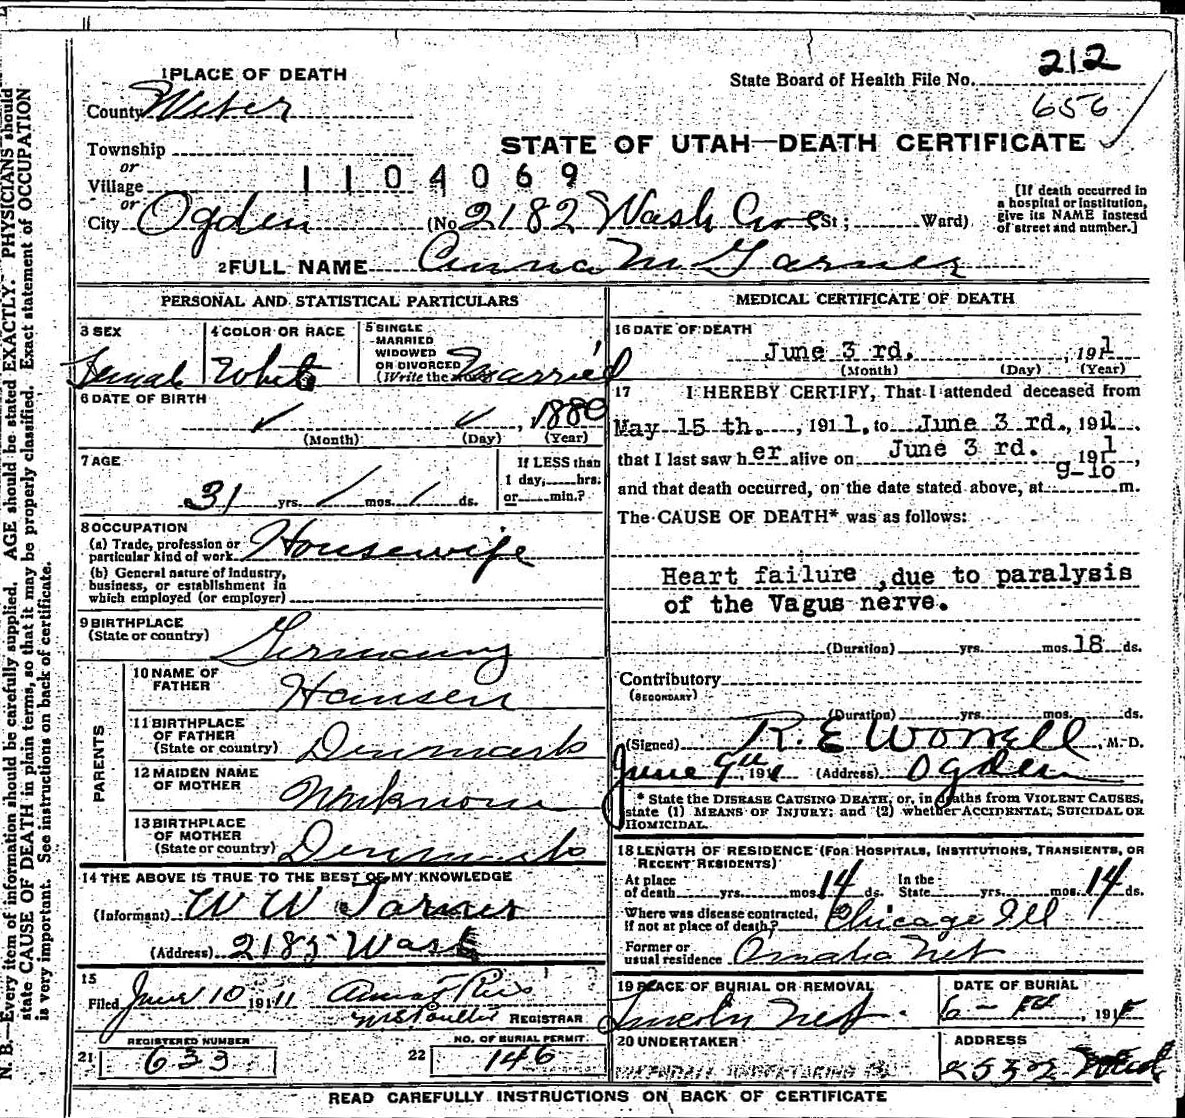 N. B.—Every item of information should be carefully supplied. AGE should be stated EXACTLY. PHYSICIANS should
state CAUSE OF DEATH in plain terms, so that it may be properly classified. Exact statement of OCCUPATION
is very important. See instructions on back of certificate.
1 PLACE OF DEATH
State Board of Health File No. 212
656
County Weber
STATE OF UTAH—DEATH CERTIFICATE
Township
or
Village 1104069
or
City Ogden (No. 2182 Wash Ave St; Ward)
[If death occurred in
a hospital or institution,
give its NAME instead
of street and number.]
2 FULL NAME Anna M Garner
PERSONAL AND STATISTICAL PARTICULARS
3 SEX
Female
4 COLOR OR RACE
White
5 SINGLE
MARRIED
WIDOWED
OR DIVORCED
(Write the word) Married
6 DATE OF BIRTH
, 1880
(Month) (Day) (Year)
7 AGE
31 yrs. / mos. / ds.
If LESS than
1 day, hrs.
or min.?
8 OCCUPATION
(a) Trade, profession or
particular kind of work Housewife
(b) General nature of industry,
business, or establishment in
which employed (or employer)
9 BIRTHPLACE
(State or country) Germany
PARENTS
10 NAME OF
FATHER Hansen
11 BIRTHPLACE
OF FATHER
(State or country) Denmark
12 MAIDEN NAME
OF MOTHER Unknown
13 BIRTHPLACE
OF MOTHER
(State or country) Denmark
14 THE ABOVE IS TRUE TO THE BEST OF MY KNOWLEDGE
(Informant) W W Garner
(Address) 2182 Wash
15
Filed June 10 1911
REGISTRAR
REGISTERED NUMBER
21 633
NO. OF BURIAL PERMIT
22 146
MEDICAL CERTIFICATE OF DEATH
16 DATE OF DEATH
June 3 rd. , 1911
(Month) (Day) (Year)
17 I HEREBY CERTIFY, That I attended deceased from
May 15 th. , 1911, to June 3 rd., 1911.
that I last saw her alive on June 3 rd. 1911,
and that death occurred, on the date stated above, at 9-10 m.
The CAUSE OF DEATH* was as follows:
Heart failure ,due to paralysis
of the Vagus nerve.
(Duration) yrs. mos. 18 ds.
Contributory
(SECONDARY)
(Duration) yrs. mos. ds.
(Signed) R. E Worrell, M. D.
June 9th, 191 (Address) Ogden
* State the DISEASE CAUSING DEATH, or, in deaths from VIOLENT CAUSES,
state (1) MEANS OF INJURY; and (2) whether ACCIDENTAL, SUICIDAL OR
HOMICIDAL.
18 LENGTH OF RESIDENCE (FOR HOSPITALS, INSTITUTIONS, TRANSIENTS, OR
RECENT RESIDENTS)
At place
of death yrs. mos. 14 ds.
In the
State yrs. mos. 14 ds.
Where was disease contracted,
if not at place of death? Chicago Ill
Former or
usual residence Omaha Neb
19 PLACE OF BURIAL OR REMOVAL
Lincoln Neb.
DATE OF BURIAL
6 , 191
20 UNDERTAKER
UNDERTAKING
ADDRESS
2532 Wash
READ CAREFULLY INSTRUCTIONS ON BACK OF CERTIFICATE